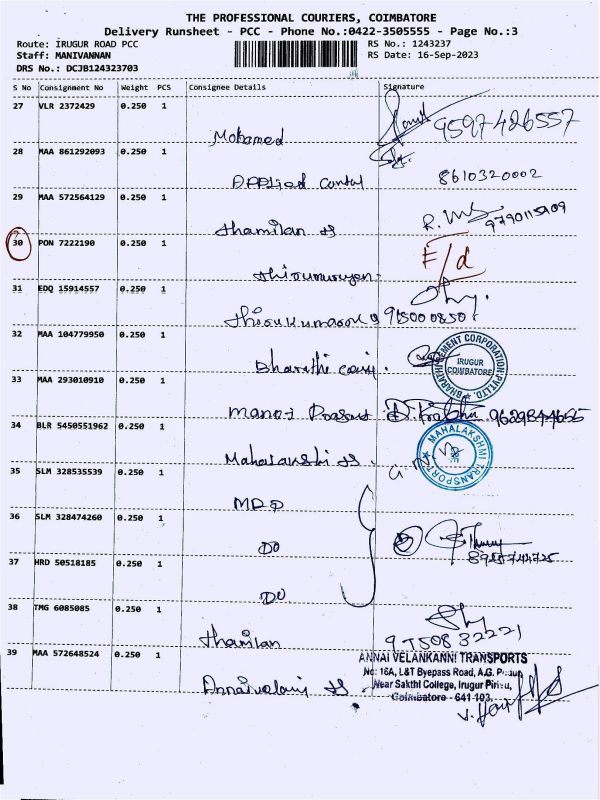 THE PROFESSIONAL COURIERS, COIMBATORE
Delivery Runsheet - PCC - Phone No.:0422-3505555 - Page No.:3
Route: IRUGUR ROAD PCC
RS No.: 1243237
Staff: MANIVANNAN
RS Date: 16-Sep-2023
DRS No.: DCJB124323703
S No Consignment No Weight PCS Consignee Details Signature
27 VLR 2372429 0.250 1
Mohamed 9597426557
28 MAA 861292093 0.250 1
Applied 8610320002
29 MAA 572564129 0.250 1
thamilan
30 PON 7222190 0.250 1
F/d
31 EDQ 15914557 0.250 1
32 MAA 104779950 0.250 1
Bharathi
IRUGUR
COIMBATORE
33 MAA 293010910 0.250 1
Manoj
34 BLR 5450551962 0.250 1
Mahalakshmi
MAHALAKSHMI TRANSPORT
35 SLM 328535539 0.250 1
MRP
36 SLM 328474260 0.250 1
DO
37 HRD 50518185 0.250 1
DO
38 TMG 6085085 0.250 1
thamilan 9750832221
39 MAA 572648524 0.250 1
ANNAI VELANKANNI TRANSPORTS
No: 16A, L&T Byepass Road, A.G.
Near Sakthi College, Irugur
Coimbatore - 641 103.